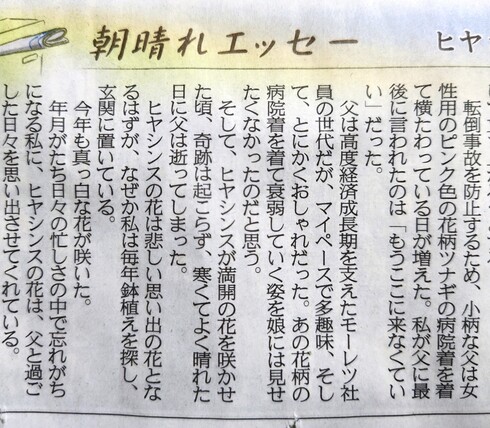 朝晴れエッセー
ヒヤ
転倒事故を防止するため、小柄な父は女
性用のピンク色の花柄ツナギの病院着を着
て横たわっている日が増えた。私が父に最
後に言われたのは「もうここに来なくてい
い」だった。
父は高度経済成長期を支えたモーレツ社
員の世代だが、マイペースで多趣味、そし
て、とにかくおしゃれだった。あの花柄の
病院着を着て衰弱していく姿を娘には見せ
たくなかったのだと思う。
そして、ヒヤシンスが満開の花を咲かせ
た頃、奇跡は起こらず、寒くてよく晴れた
日に父は逝ってしまった。
ヒヤシンスの花は悲しい思い出の花とな
るはずが、なぜか私は毎年鉢植えを探し、
玄関に置いている。
今年も真っ白な花が咲いた。
年月がたち日々の忙しさの中で忘れがち
になる私に、ヒヤシンスの花は、父と過ご
した日々を思い出させてくれている。